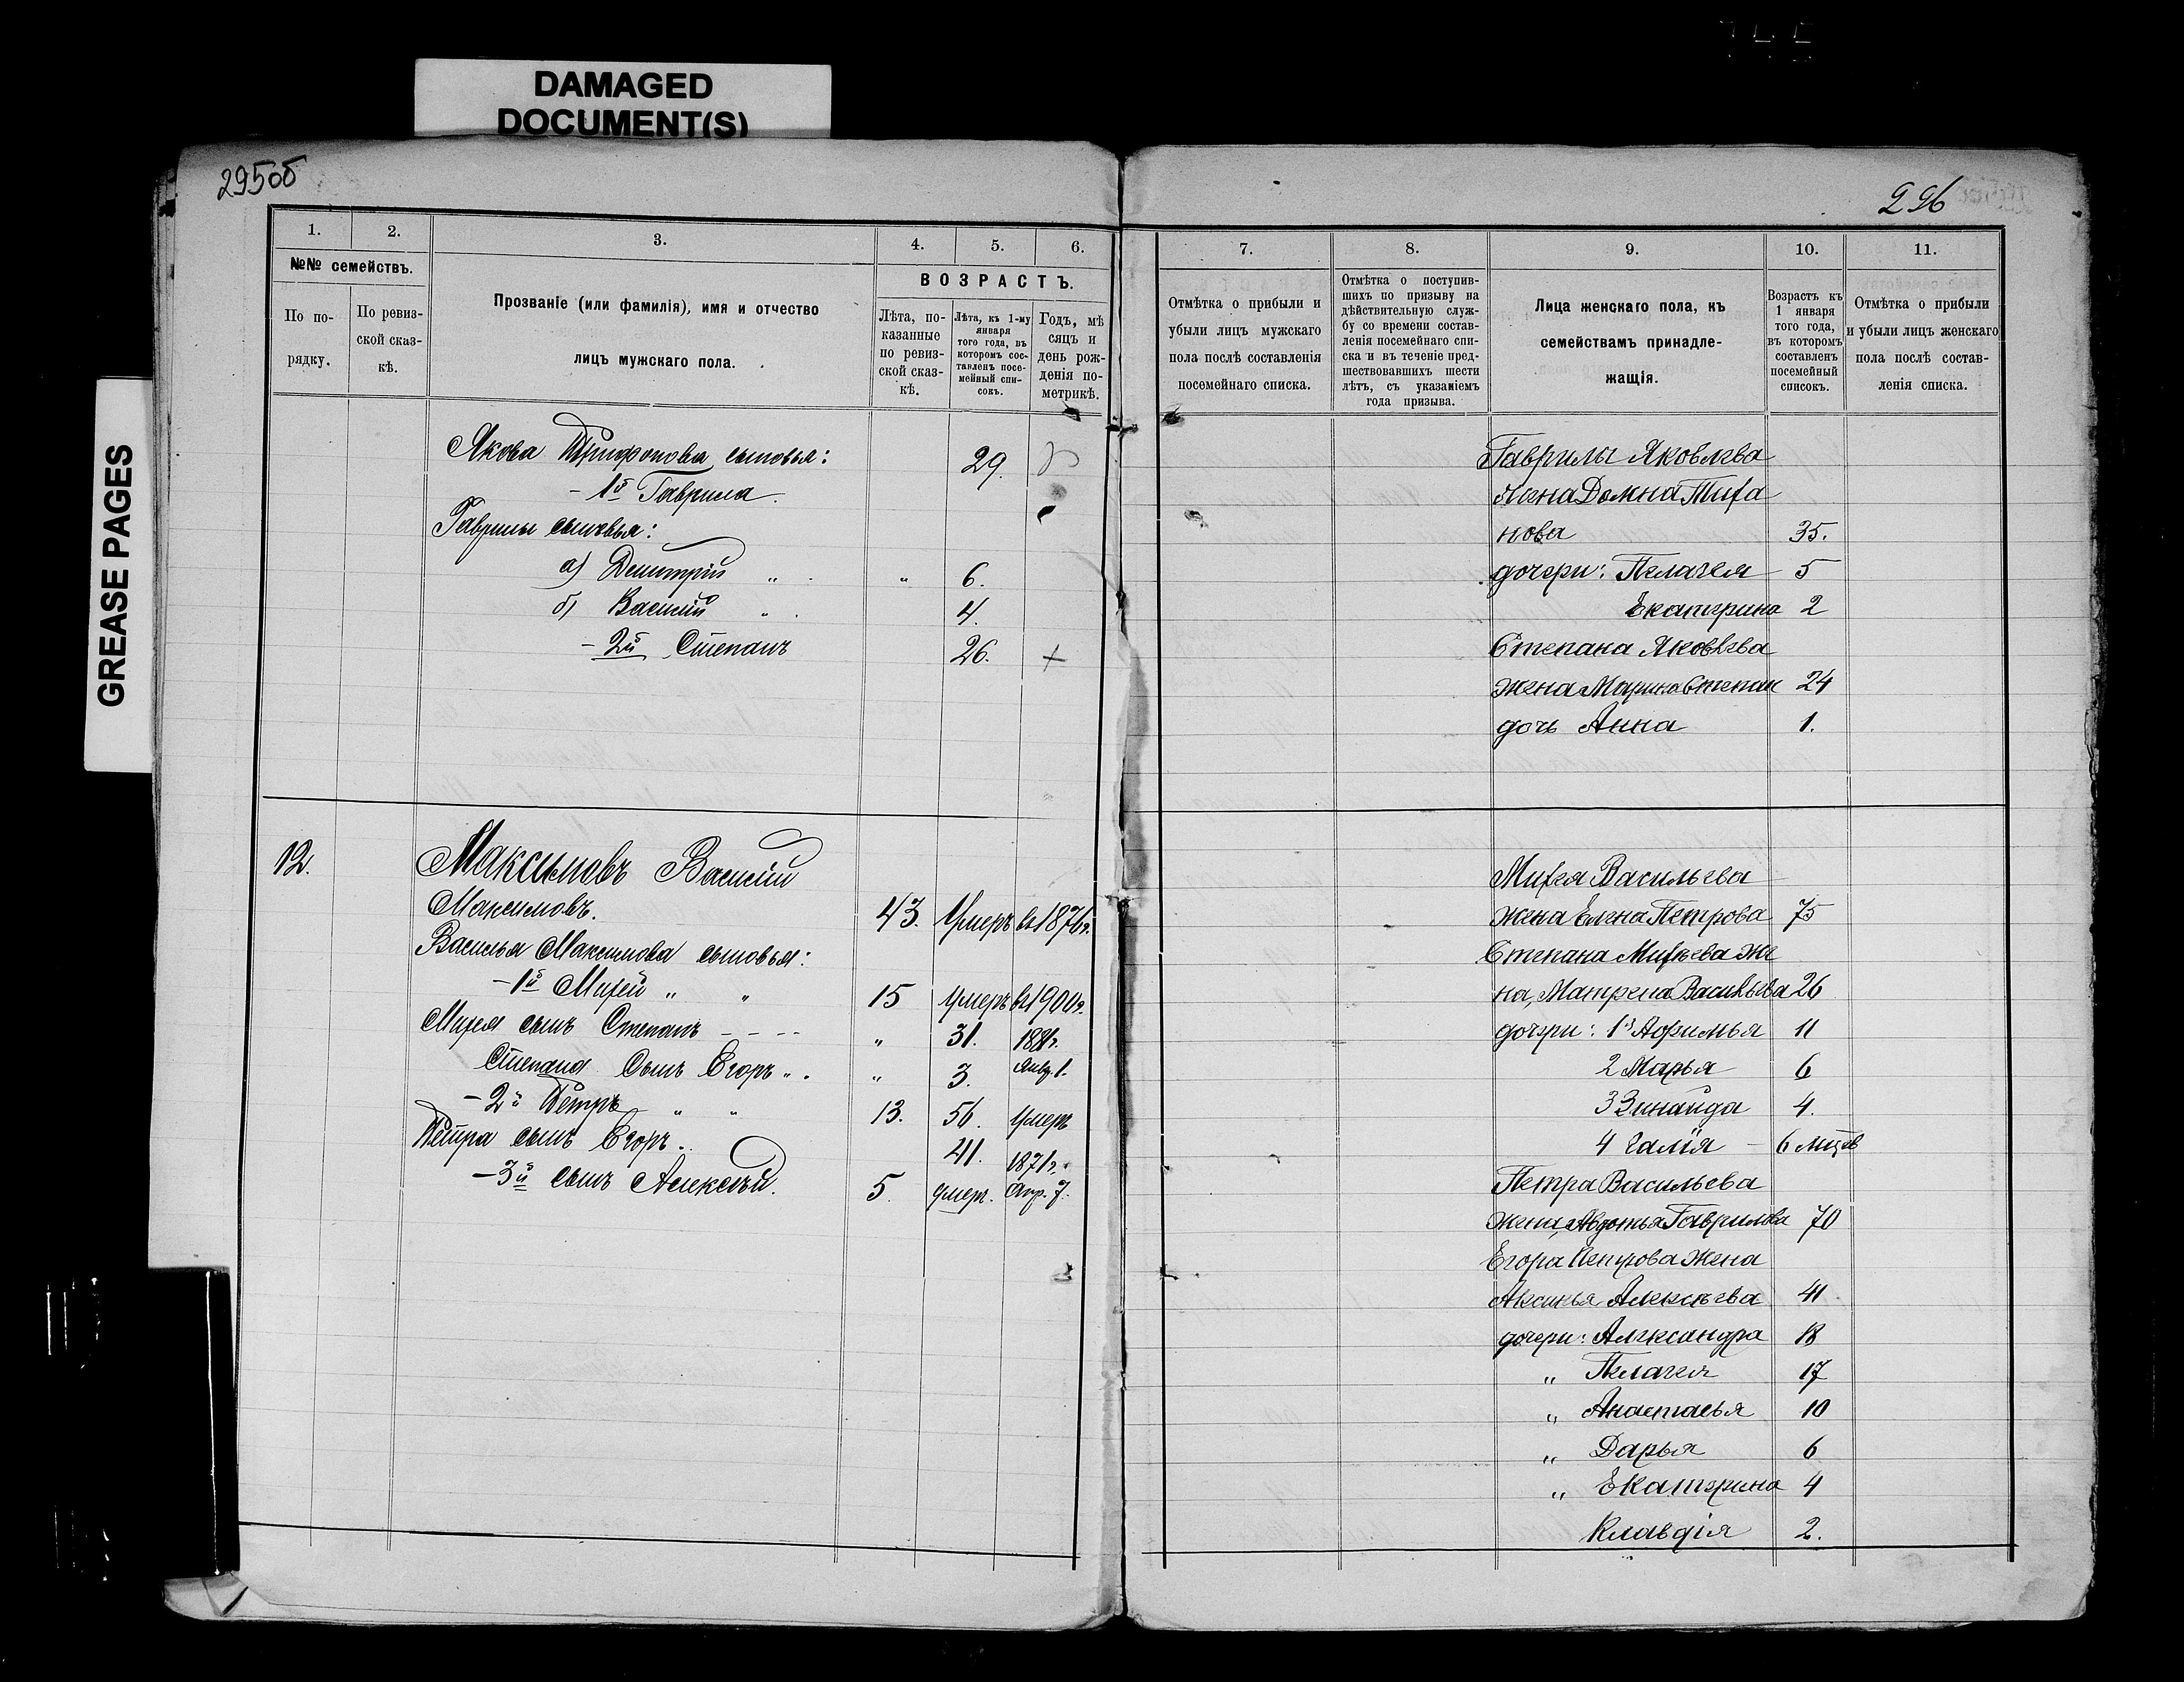 DAMAGED
DOCUMENT(S)
GREASE PAGES
295об
1. 2. 3. 4. 5. 6.
№№ семействъ.
По по-
рядку.
По ревиз-
ской сказ-
кѣ.
Прозваніе (или фамилія), имя и отчество
лицъ мужскаго пола.
ВОЗРАСТЪ.
Лѣта, по-
казанные
по ревиз-
ской сказ-
кѣ.
Лѣта, къ 1-му
января
того года, въ
которомъ сос-
тавленъ посе-
мейный спи-
сокъ.
Годъ, мѣ
сяцъ и
день рож-
денія по-
метрикѣ.
Якова Трифонова сыновья: 29.
- 1й Гаврила.
Гаврилы сыновья:
а) Дмитрій " . " 6.
б) Василій " . 4.
- 2й Степанъ 26. +
12. Максимовъ Василій
Максимовъ. 43. Умеръ въ 1876г.
Василья Максимова сыновья:
- 1й Михей " " 15 умеръ въ 1900г.
Михея сынъ Степанъ - - - " 31. 1881г.
Степана сынъ Егоръ " . " 3. Янв. 1.
- 2й Петръ " " 13. 56. умеръ
Петра сынъ Егоръ. 41. 1871г.
- 3й сынъ Алексѣй. 5. умеръ. Апр. 7.
296
7. 8. 9. 10. 11.
Отмѣтка о прибыли и
убыли лицъ мужскаго
пола послѣ составленія
посемейнаго списка.
Отмѣтка о поступив-
шихъ по призыву на
дѣйствительную служ-
бу со времени состав-
ленія посемейнаго спи-
ска и въ теченіе пред-
шествовавшихъ шести
лѣтъ, съ указаніемъ
года призыва.
Лица женскаго пола, къ
семействамъ принадле-
жащія.
Возрастъ къ
1 января
того года,
въ которомъ
составленъ
посемейный
списокъ.
Отмѣтка о прибыли
и убыли лицъ женскаго
пола послѣ состав-
ленія списка.
Гаврилы Яковлева
жена Домна Миха
нова 35.
дочери: Пелагея 5
Екатерина 2
Степана Яковлева
жена Марина Степан 24
дочь Анна 1.
Михея Васильева
жена Елена Петрова 75
Степана Михеева же
на, Матрена Васильева 26
дочери: 1я Афимья 11
2 Марья 6
3 Зинаида 4.
4 6 мцев
Петра Васильева
жена, Авдотья Гаврилова 70
Егора Петрова жена
Аксинья Алексѣева 41
дочери: Александра 18
" Пелагея 17
" Анастасья 10
" Дарья 6
" Екатерина 4
Клавдія 2.